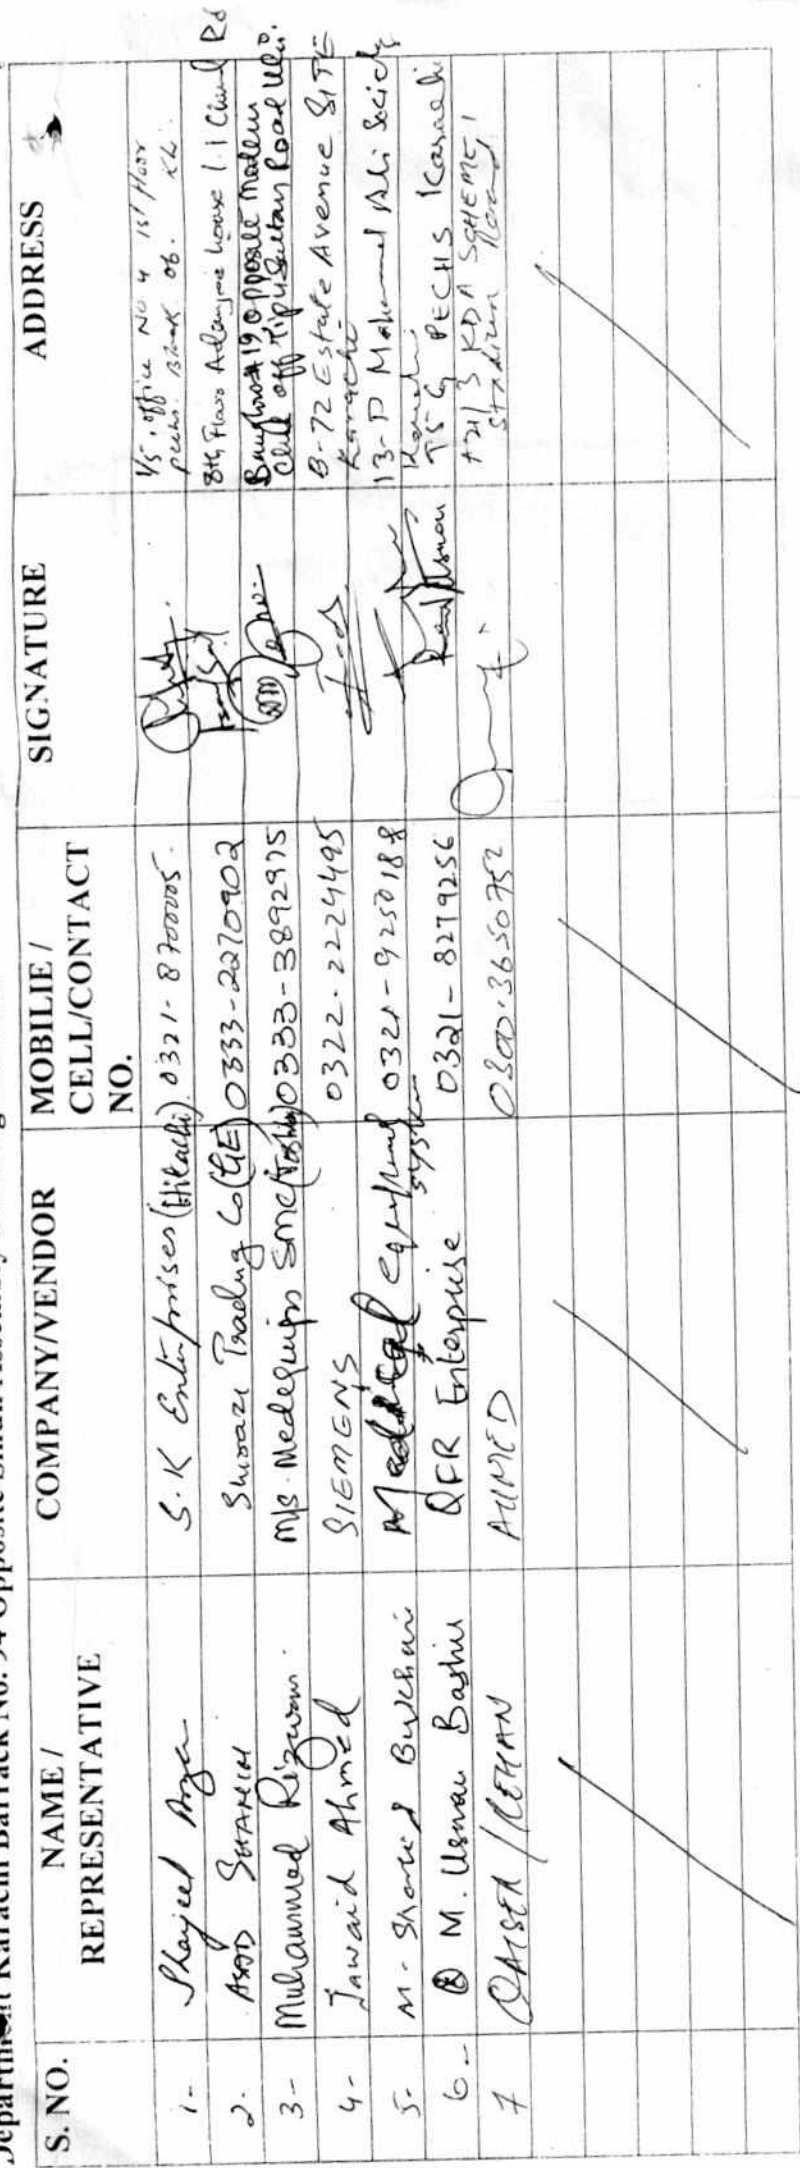 Department Karachi Barrack No. 94 Opposite Sindh Assembly
S. NO. NAME / REPRESENTATIVE COMPANY/VENDOR MOBILIE / CELL/CONTACT NO. SIGNATURE ADDRESS
1- Sharjeel S.K Enterprises (Hitachi) 0321-8700005. 1/5, office No 4 1st floor
pechs. Block 06. Khi.
2. ASAD SHAMIM Shirazi Trading Co (GE) 0333-2270902 8th Floor Adamjee house I.I Chund Rd
3- Muhammad Rizwan. M/s. Medequips SMC (Toshiba) 0333-3892975 Banglow# 19 Opposite Modern
Club off Tipu Sultan Road Khi.
4- Jawaid Ahmed SIEMENS 0322-2224495 B-72 Estate Avenue SITE
Karachi
5- M. Bukhari Medical equipment system 0321-9250188 13-D Mohammad Ali Society
Karachi
6- M. Usman Bashir QFR Enterprise 0321-8279256 PECHS Karachi
7 QAISER / REHAN AHMED 0300-3650752 KDA SCHEME 1
Stadium Road